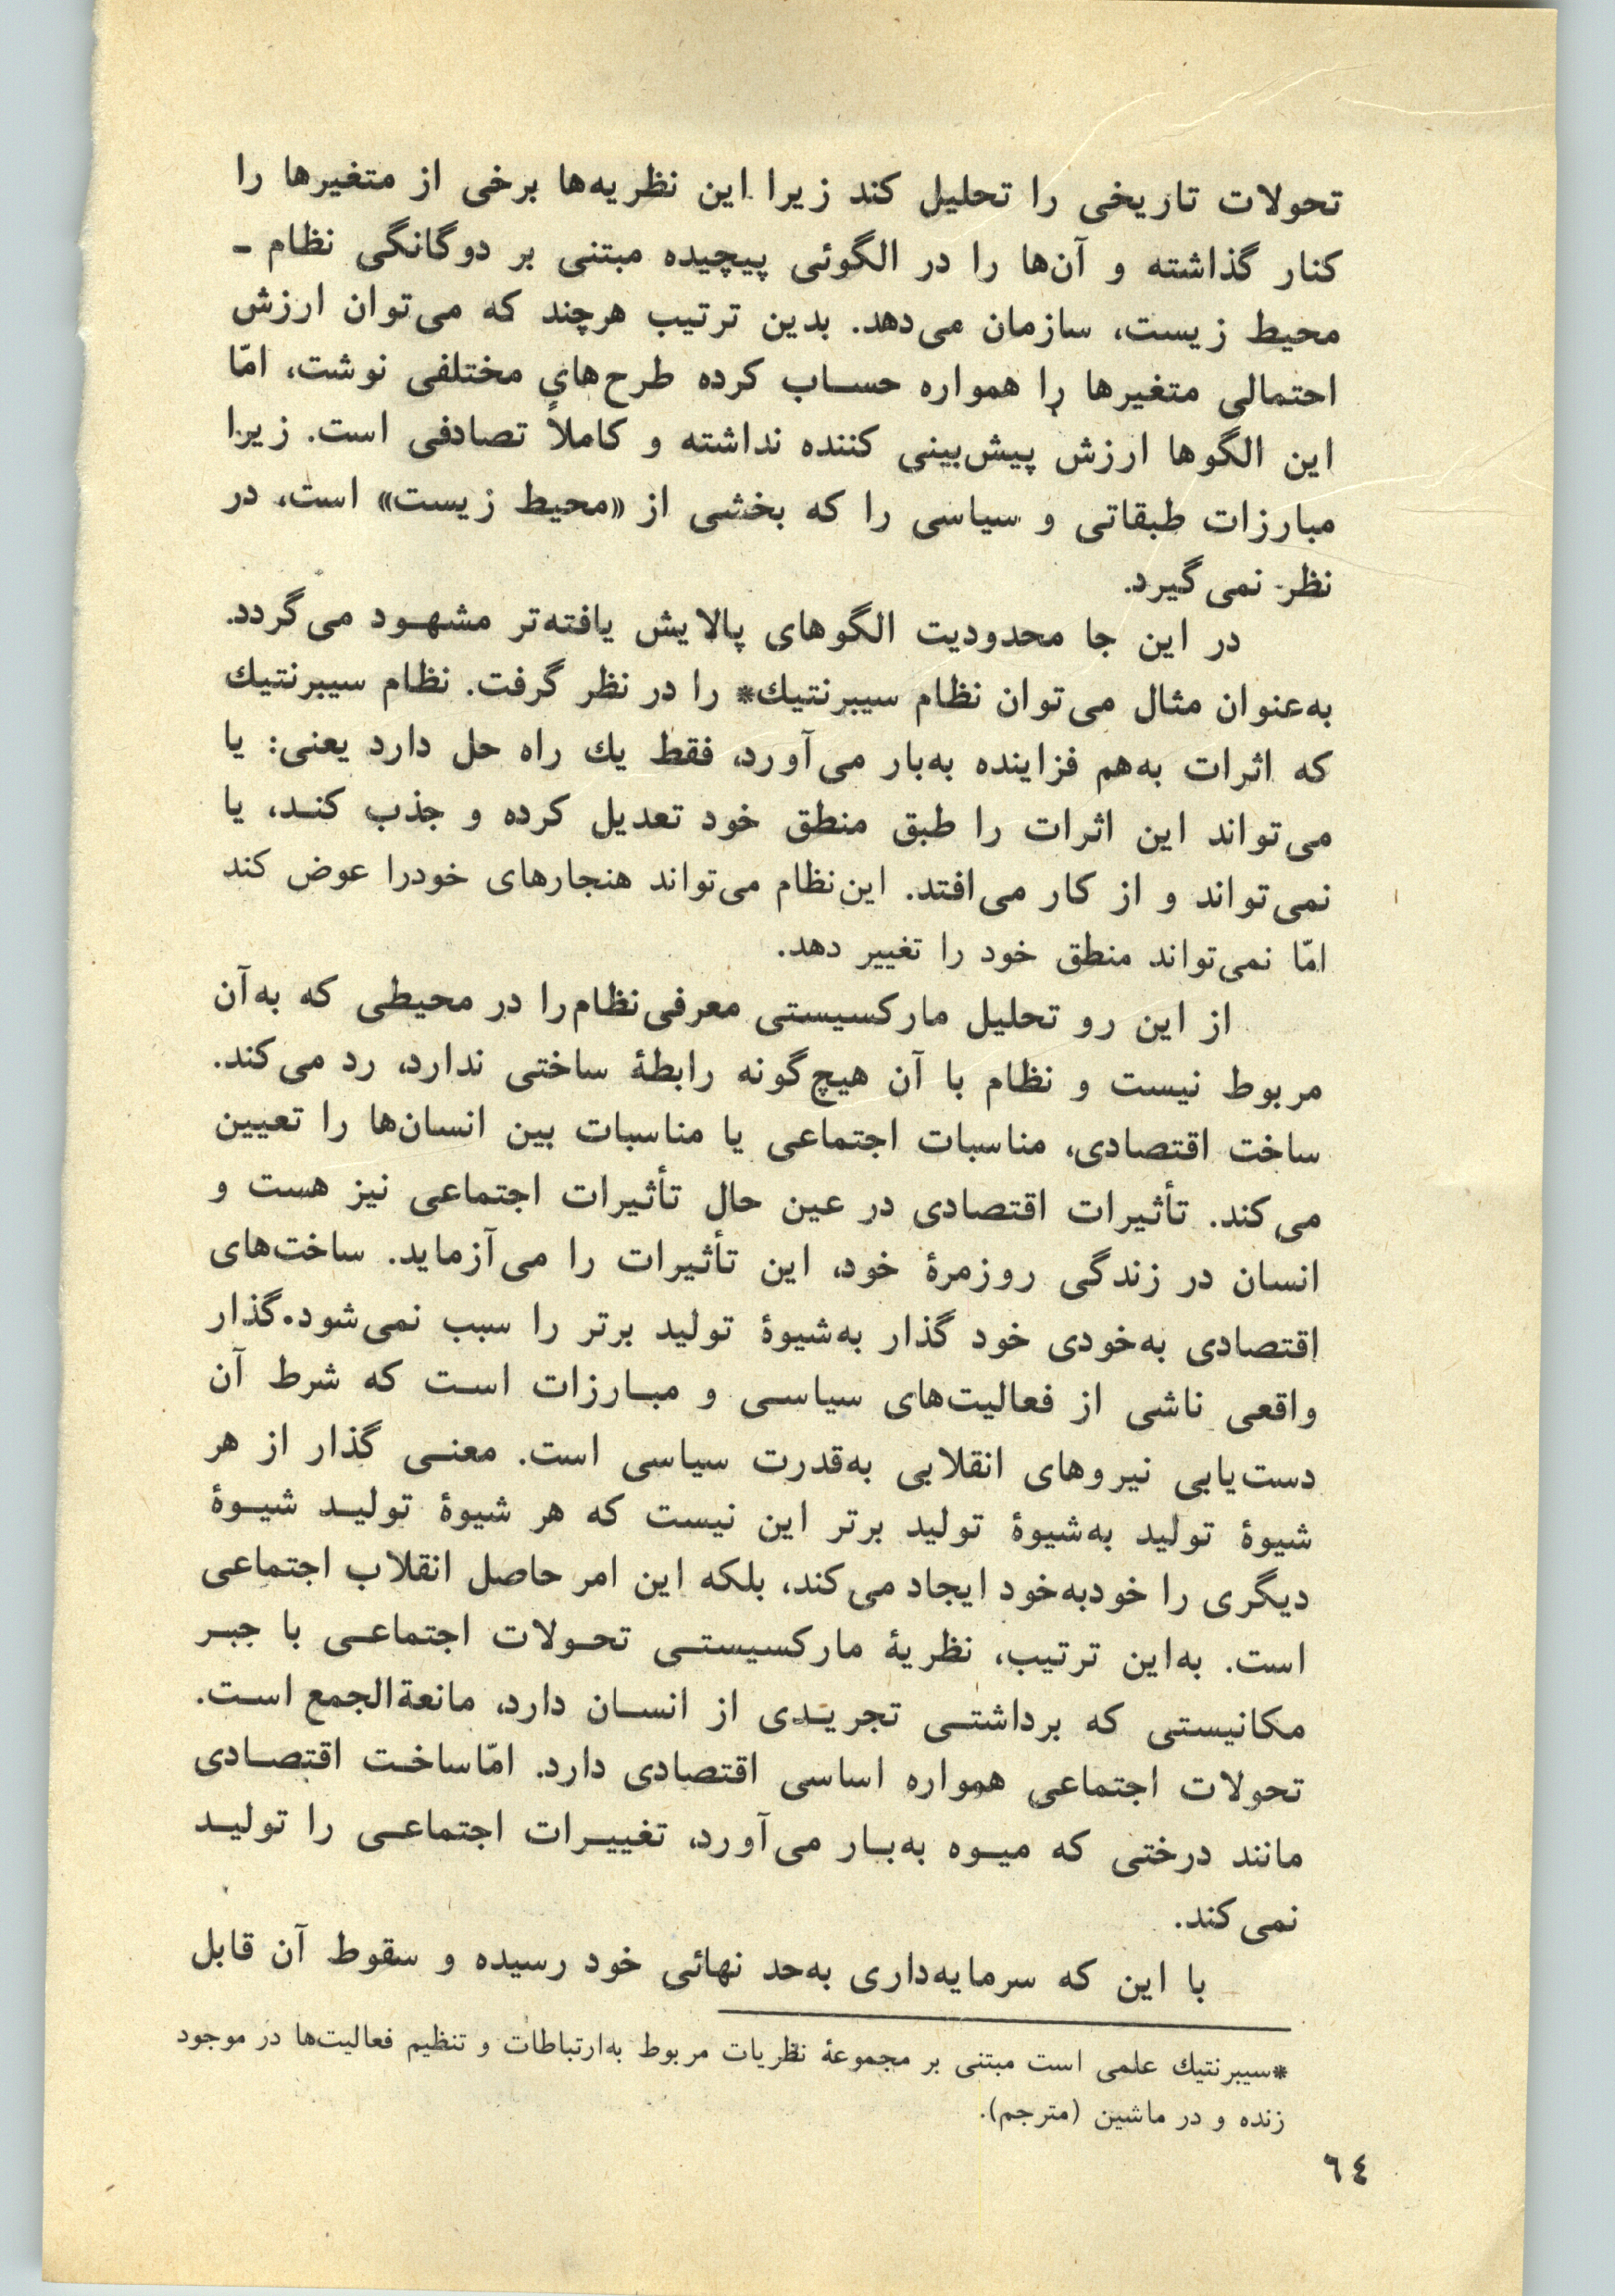 تحولات تاریخی را تحلیل کند زیرا این نظریه‌ها برخی از متغیرها را
کنار گذاشته و آن‌ها را در الگوئی پیچیده مبتنی بر دوگانگی نظام -
محیط زیست، سازمان می‌دهد. بدین ترتیب هرچند که می‌توان ارزش
احتمالی متغیرها را همواره حساب کرده طرح‌های مختلفی نوشت، امّا
این الگوها ارزش پیش‌بینی کننده نداشته و کاملاً تصادفی است. زیرا
مبارزات طبقاتی و سیاسی را که بخشی از «محیط زیست» است، در
نظر نمی‌گیرد.
در این جا محدودیت الگوهای پالایش یافته‌تر مشهود می‌گردد.
به‌عنوان مثال می‌توان نظام سیبرنتیك* را در نظر گرفت. نظام سیبرنتیك
که اثرات به‌هم فزاینده به‌بار می‌آورد، فقط یك راه حل دارد یعنی: یا
می‌تواند این اثرات را طبق منطق خود تعدیل کرده و جذب کند، یا
نمی‌تواند و از کار می‌افتد. این‌نظام می‌تواند هنجارهای خودرا عوض کند
امّا نمی‌تواند منطق خود را تغییر دهد.
از این رو تحلیل مارکسیستی معرفی‌نظام‌را در محیطی که به‌آن
مربوط نیست و نظام با آن هیچ‌گونه رابطهٔ ساختی ندارد، رد می‌کند.
ساخت اقتصادی، مناسبات اجتماعی یا مناسبات بین انسان‌ها را تعیین
می‌کند. تأثیرات اقتصادی در عین حال تأثیرات اجتماعی نیز هست و
انسان در زندگی روزمرهٔ خود، این تأثیرات را می‌آزماید. ساخت‌های
اقتصادی به‌خودی خود گذار به‌شیوهٔ تولید برتر را سبب نمی‌شود.گذار
واقعی ناشی از فعالیت‌های سیاسی و مبارزات است که شرط آن
دست‌یابی نیروهای انقلابی به‌قدرت سیاسی است. معنی گذار از هر
شیوهٔ تولید به‌شیوهٔ تولید برتر این نیست که هر شیوهٔ تولید شیوهٔ
دیگری را خودبه‌خود ایجاد می‌کند، بلکه این امر حاصل انقلاب اجتماعی
است. به‌این ترتیب، نظریهٔ مارکسیستی تحولات اجتماعی با جبر
مکانیستی که برداشتی تجریدی از انسان دارد، مانعةالجمع است.
تحولات اجتماعی همواره اساسی اقتصادی دارد. امّاساخت اقتصادی
مانند درختی که میوه به‌بار می‌آورد، تغییرات اجتماعی را تولید
نمی‌کند.
با این که سرمایه‌داری به‌حد نهائی خود رسیده و سقوط آن قابل
*سیبرنتیك علمی است مبتنی بر مجموعهٔ نظریات مربوط به‌ارتباطات و تنظیم فعالیت‌ها در موجود
زنده و در ماشین (مترجم).
٦٤